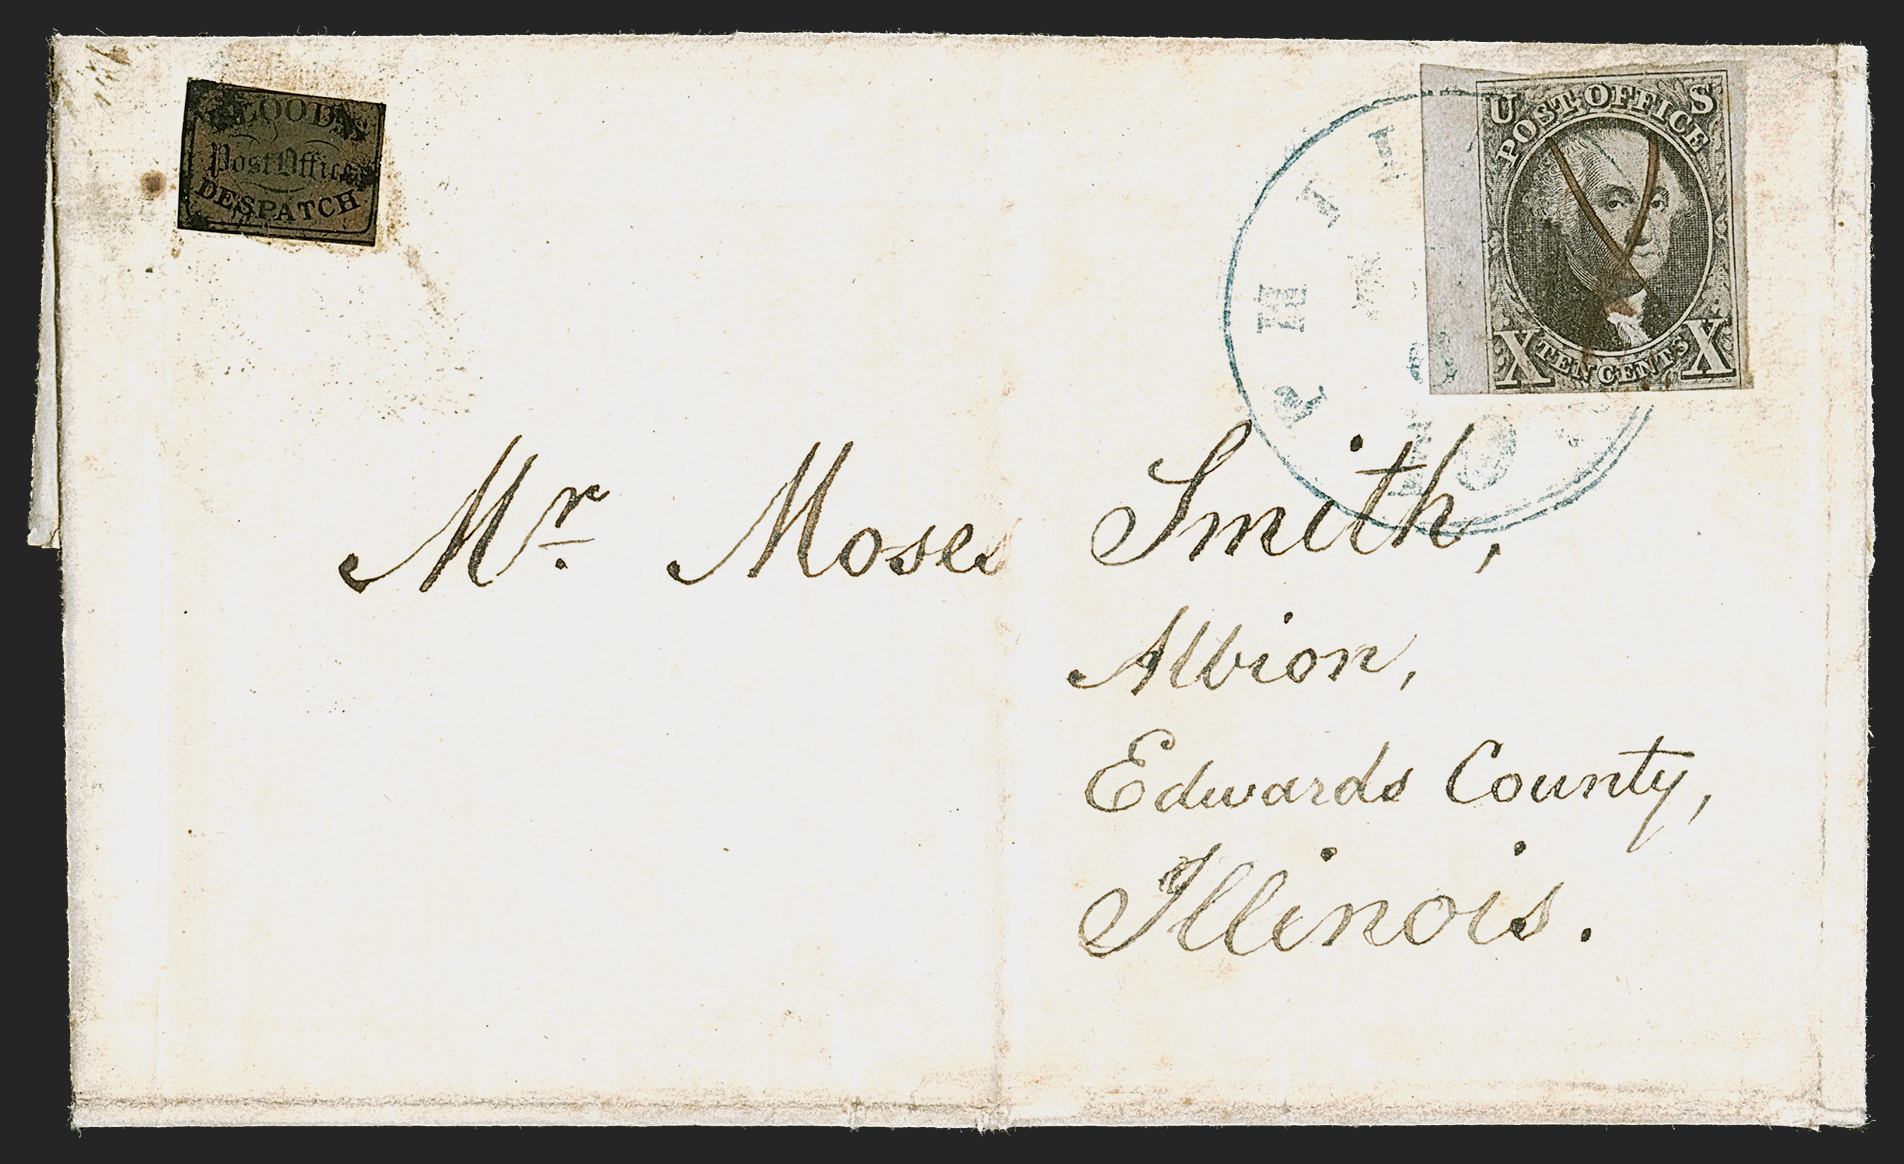 BLOOD'S
Post Office
DESPATCH
U S
POST OFFICE
X TEN CENTS X
PHIL
Mr. Moses Smith,
Albion,
Edwards County,
Illinois.